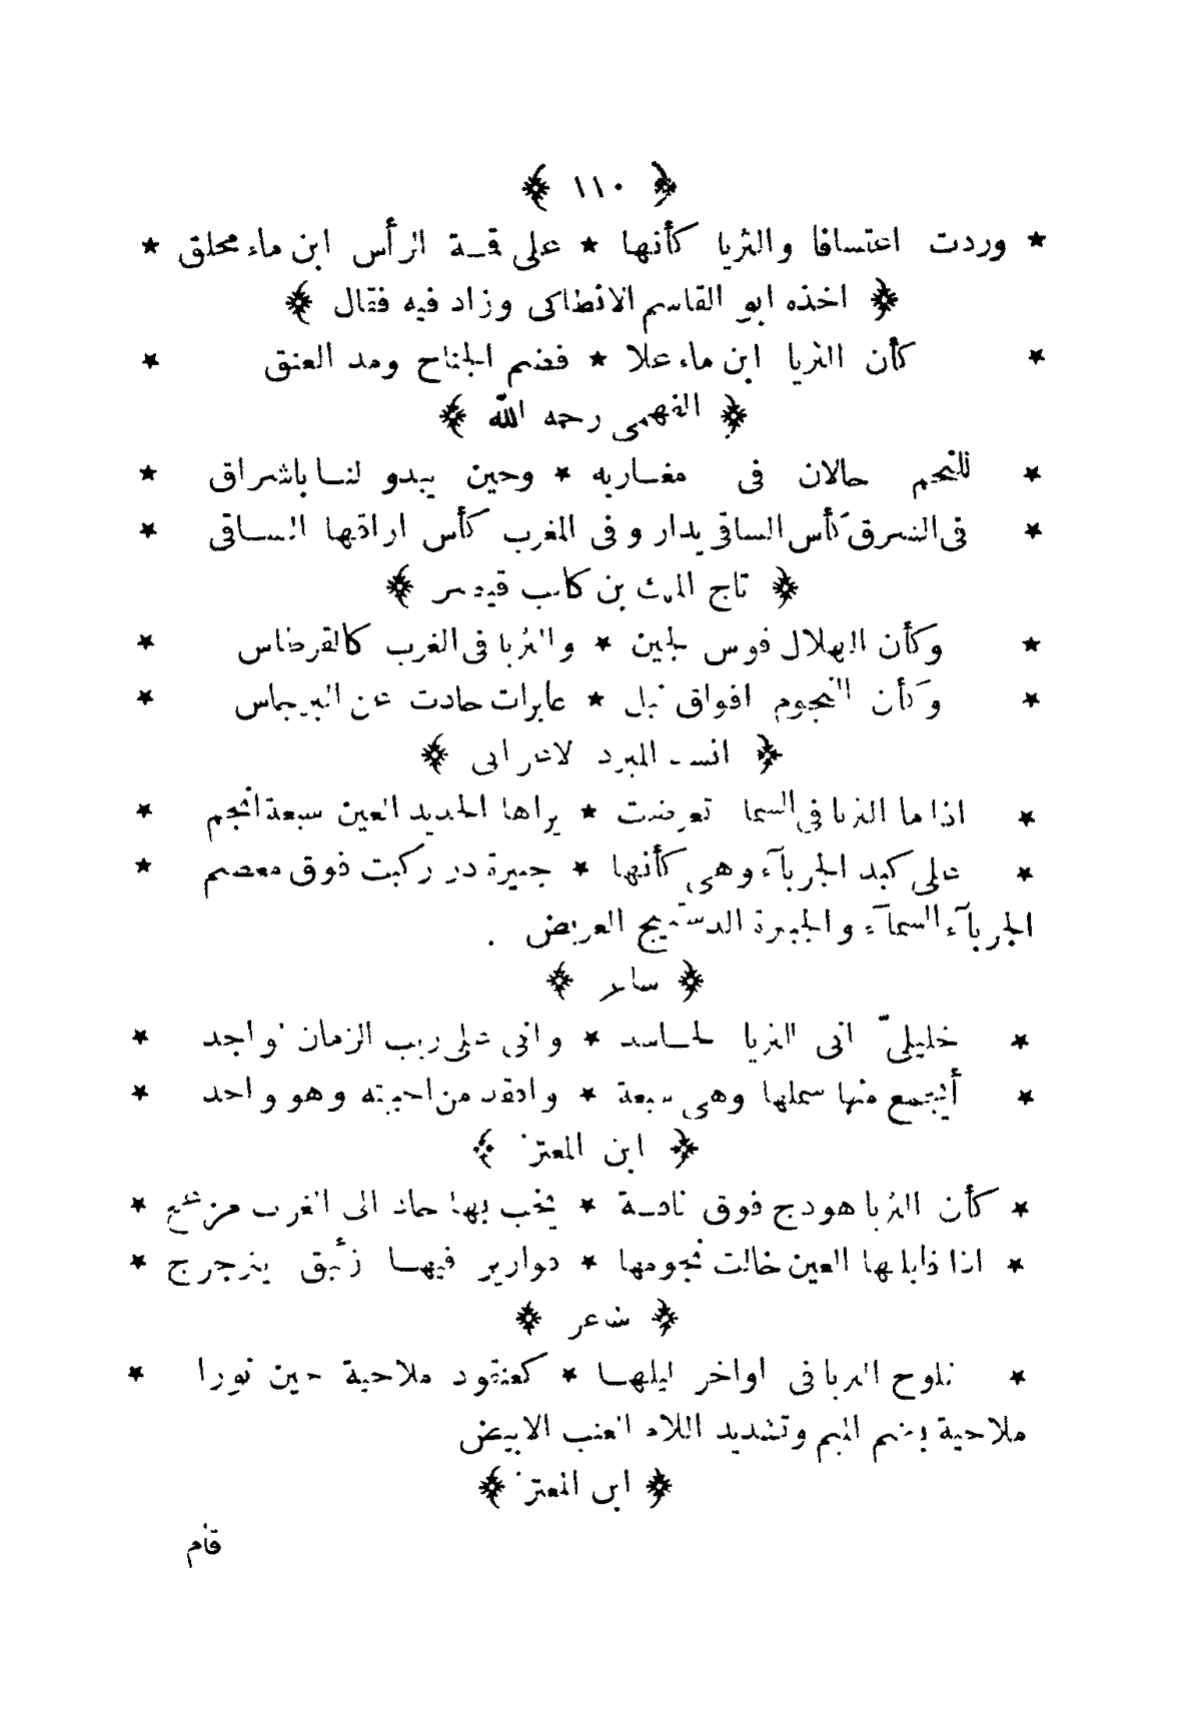 ﴿ ١١٠ ﴾
* وردت اعتسافا والثريا كأنها * على قمة الرأس ابن ماء محلق *
﴿ اخذه ابو القاسم الانطاكى وزاد فيه فقال ﴾
* كأن الثريا ابن ماء علا * فضم الجناح ومد العنق *
﴿ الفهمى رحمه الله ﴾
* للنجم حالان فى مغاربه * وحين يبدو لنا باشراق *
* فى الشرق كأس الساقى يدار وفى المغرب كأس اراقها الساقى *
﴿ تاج الملك بن كاتب قيصر ﴾
* وكأن الهلال قوس لجين * والثريا فى الغرب كالقرطاس *
* وكأن النجوم افواق نبل * عابرات حادت عن البرجاس *
﴿ انشد المبرد لاعرابى ﴾
* اذا ما الثريا فى السما تعرضت * يراها الحديد العين سبعة انجم *
* على كبد الجربآء وهى كأنها * جبيرة در ركبت فوق معصم *
الجربآء السمآء والجبيرة الدستينج العريض .
﴿ شاعر ﴾
* خليلىّ انى للثريا لحاسد * وانى على ريب الزمان لواجد *
* أيجمع منها شملها وهى سبعة * وافقد من احببته وهو واحد *
﴿ ابن المعتز ﴾
* كأن الثريا هودج فوق ناقة * يخب بها حاد الى الغرب مزعج *
* اذا قابلها العين خالت نجومها * قوارير فيها زئبق يترجرج *
﴿ شاعر ﴾
* تلوح الثريا فى اواخر ليلها * كعنقود ملاحية حين نورا *
ملاحية بضم الميم وتشديد اللام العنب الابيض
﴿ ابن المعتز ﴾